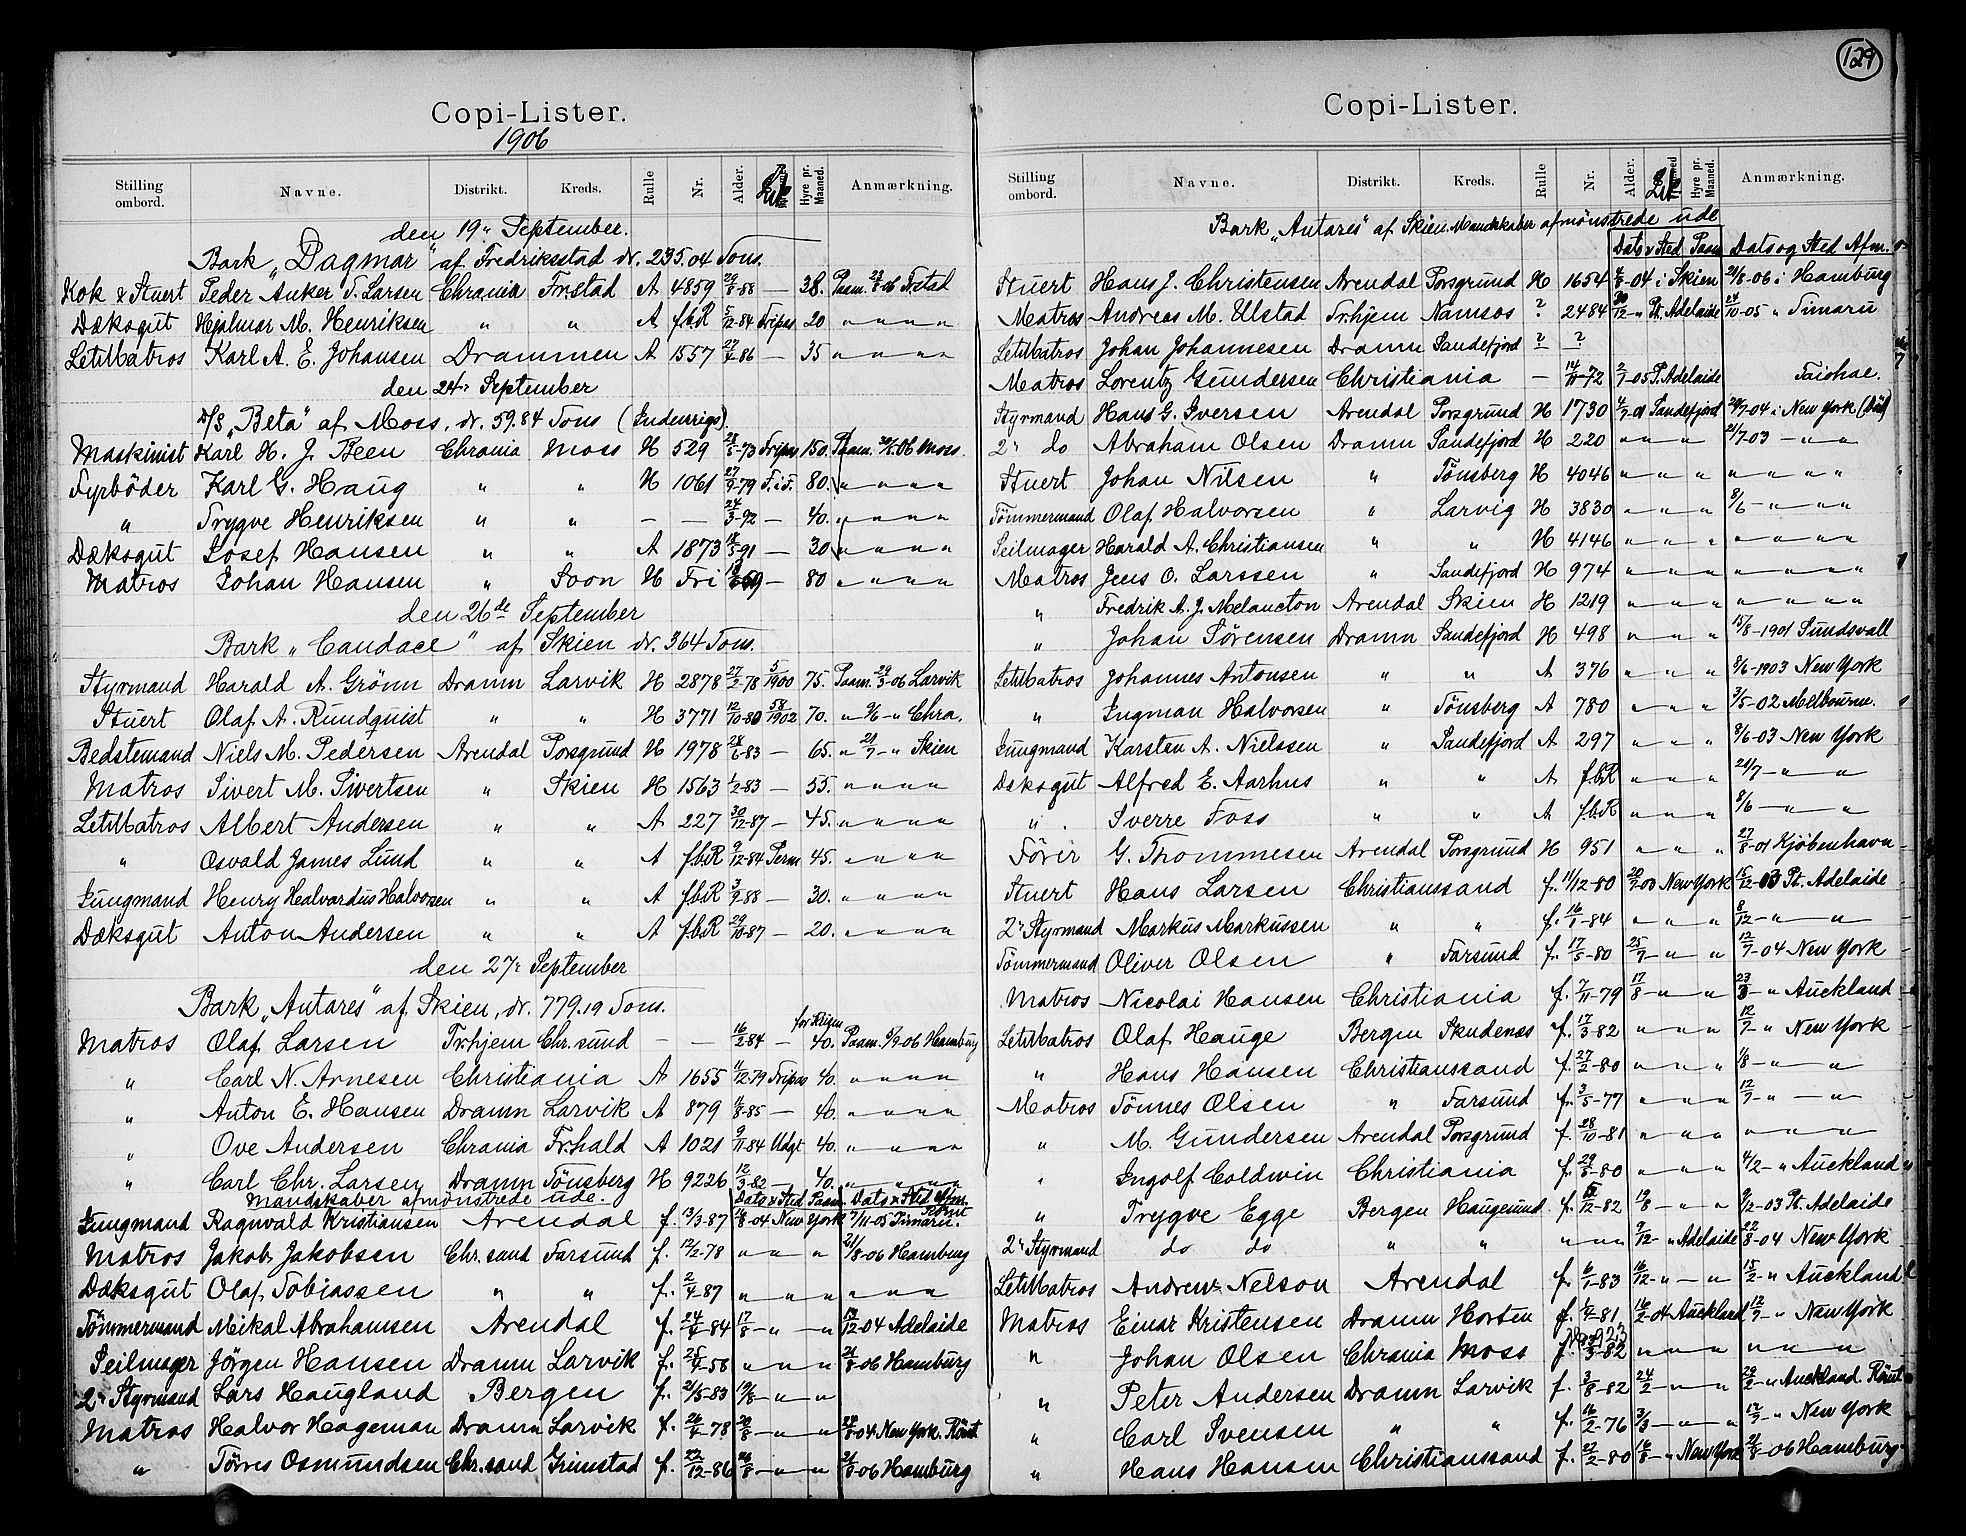 129
Copi-Lister.
1906
Stilling ombord. Navne. Distrikt. Kreds. Rulle Nr. Alder. Hyre pr. Maaned. Anmærkning.
den 19. September.
Bark „Dagmar" af Fredriksstad dr. 235.04 Tons.
Kok & Stuert Peder Anker T. Larsen Chrania Frstad A 4859 29/8-88 — 38. Paam. 28/8 06 Frstad
Dæksgut Hjalmar M. Henriksen " " A fbR 5/12-84 Fripas 20 " " " "
LetMatros Karl A. E. Johansen Drammen A 1557 — 35 " " " "
den 24. September
D/S „Beta" af Moss, dr. 59.84 Tons (Indenrigs)
Maskinist Karl H. J. Been Chrania Moss H 529 28/5-73 Fripas 150. Paam. 06 Moss.
Fyrböder Karl G. Haug " " H 1061 27/9-79 F.i.F. 80. " " " "
" Trygve Henriksen " " — — 24/3-92 — 40. " " " "
Dæksgut Josef Hansen " " A 1873 18/5-91 — 30 " " " "
Matros Johan Hansen " Soon H Fri 69 — 80 " " " "
den 26de September
Bark „Candace" af Skien dr. 364 Tons.
Styrmand Harald A. Grönn Dramn Larvik H 2878 27/2-78 5/1900 75. Paam. 29/3-06 Larvik
Stuert Olaf A. Rundquist " " H 3771 12/10-80 58/1902 70. " 9/6-" Chra.
Bedstemand Niels M. Pedersen Arendal Porsgrund H 1978 28/6-83 — 65. " 21/7-" Skien
Matros Sivert M. Sivertsen " Skien H 1563 1/2-83 — 55. " " " "
LetMatros Albert Andersen " " A 227 30/12-87 — 45. " " " "
" Osvald James Lund " " A fbR 9/12-84 Perm 45. " " " "
Jungmand Henry Halvardus Halvorsen " " A fbR 3/9-88 — 30. " " " "
Dæksgut Anton Andersen " " A fbR 29/10-87 — 20. " " " "
den 27. September
Bark „Antares" af Skien, dr. 779.19 Tons.
Matros Olaf Larsen Tr.hjem Chr. sund — — 16/2-84 — 40. Paam. 5/9-06 Hamburg
" Carl N. Arnesen Christiania A 1655 11/12-79 Fripas 40. " " " "
" Anton E. Hansen Dramn Larvik A 879 8-85 — 40. " " " "
" Ove Andersen Chrania Fr.hald A 1021 9/11-84 Udgt 40. " " " "
" Carl Chr. Larsen Dramn Tönsberg H 9226 12/3-82 — 40. " " " "
Mandskaber afmönstrede ude. Dato & Sted Paam Dato & Sted Afm.
Jungmand Ragnvald Kristiansen Arendal f. 13/3-87 16/8-04 New York 7/11-05 Timaru. Römt
Matros Jakob Jakobsen Chr. sand Farsund f. 12/2-78 " " " 21/8-06 Hamburg
Dæksgut Olaf Tobiassen " " f. 2/4-87 " " " " " "
Tömmermand Mikal Abrahamsen Arendal f. 24/4-84 17/8 — " — " 12-04 Adelaide
Seilmager Jörgen Hansen Dramn Larvik f. 25/4-58 " " " 21/8-06 Hamburg
2. Styrmand Lars Haugland Bergen f. 21/5-83 19/8 — " — "
Matros Halvor Hageman Dramn Larvik f. 26/4-78 20/8 — " — " 8-04 New York. Römt
" Törres Osmundsen Chr. sand Grimstad f. 22/12-86 26/8 — " — " 21/8-06 Hamburg
Copi-Lister.
Stilling ombord. Navne. Distrikt. Kreds. Rulle Nr. Alder. Hyre pr. Maaned. Anmærkning.
Bark „Antares" af Skien Mandskaber afmönstrede ude
Dato & Sted Paam Dato og Sted Afm.
Stuert Hans J. Christensen Arendal Porsgrund H 1654 8-04 i Skien 21/8-06 i Hamburg
Matros Andreas M. Ulstad Tr.hjem Namsos ? 2484 30/12-" Pt. Adelaide 24/10-05 " Timaru
LetMatros Johan Johannesen Dramn Sandefjord ? ?
Matros Lorentz Gundersen Christiania — 14/11-72 2/7-05 P. Adelaide Taiohae.
Styrmand Hans G. Iversen Arendal Porsgrund H 1730 4/7-01 Sandefjord 7-04 i New York (Död)
2. do Abraham Olsen Dramn Sandefjord H 220 " " " 21/7-03 — " — "
Stuert Johan Nilsen " Tönsberg H 4046 " " " " " " "
Tömmermand Olaf Halvorsen " Larvig H 3830 " " " 8/6 — " — "
Seilmager Harald A. Christiansen " " H 4146 " " " " " " "
Matros Jens O. Larssen " Sandefjord H 974 " " " " " " "
" Fredrik A. J. Melancton Arendal Skien H 1219 " " " " " " "
" Johan Sörensen Dramn Sandefjord H 498 " " " 15/8-1901 Sundsvall
LetMatros Johannes Antonsen " " A 376 " " " 8/6-1903 New York
" Ingman Halvorsen " Tönsberg A 780 " " " 3/5-02 Melbourne.
Jungmand Karsten A. Nielssen " Sandefjord A 297 " " " 8/6-03 New York
Dæksgut Alfred E. Aarhus " " A fbR " " " 21/7 — " — "
" Sverre Foss " " A fbR " " " 8/6 — " — "
Förer G. Thommesen Arendal Porsgrund H 951 " " " 27/8-01 Kjöbenhavn
Stuert Hans Larsen Christianssand f. 11/12-80 00 New York 15/12-03 Pt. Adelaide
2. Styrmand Markus Markussen " " f. 16/1-84 " " " 8/12 — " — "
Tömmermand Oliver Olsen " Farsund f. 17/5-80 25/7 — " " 12/7-04 New York
Matros Nicolai Hansen Christiania f. 7/11-79 17/8 — " — " " Auckland
LetMatros Olaf Hauge Bergen Skudenæs f. 17/3-82 " " " 12/7-" New York
" Hans Hansen Christianssand f. 27/2-80 " " " 1/8 — " — "
Matros Tönnes Olsen " Farsund f. 3/5-77 " " " 12/7 — " — "
" M. Gundersen Arendal Porsgrund f. 28/10-81 " " " " " " "
" Ingolf Coldwin Christiania f. 29/5-80 " " " 4/2-" Auckland
" Trygve Egge Bergen Haugesund f. 12-82 19/8 — " " 9/12-03 Pt. Adelaide
2. Styrmand do do " " " " " 9/12-" Adelaide 22/8-04 New York
LetMatros Andrew Nelson Arendal f. 6/1-83 16/12-" — " 15/2-" Auckland
Matros Einar Kristensen Dramn Horten f. 2-81 16/2-04 Auckland 12/7-" New York
" Johan Olsen Chrania Moss f. 3-82 " " " " " "
" Peter Andersen Dramn Larvik f. 3/8-82 24/2 — " " 29/2-" Auckland Römt
" Carl Svensen " " f. 16/2-76 3/3 — " — " 12/7-" New York
" Hans Hansen Christianssand f. 22/2-80 16/8-" New York 21/8-06 Hamburg